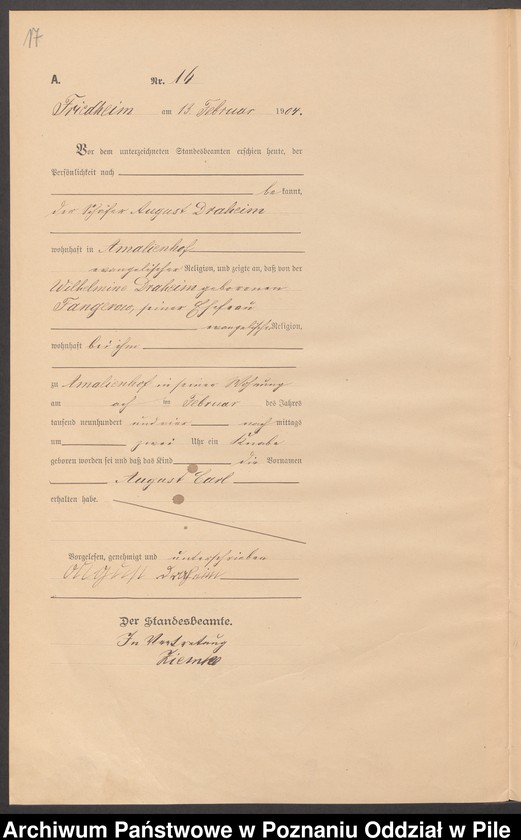 17
A.
Nr. 16
Friedheim am 13. Februar 1904.
Vor dem unterzeichneten Standesbeamten erschien heute, der
Persönlichkeit nach
be kannt,
der August Draheim
wohnhaft in Amalienhof
evangelischer Religion, und zeigte an, daß von der
Wilhelmine Draheim geborenen
Tangerow, seiner Ehefrau
evangelischer Religion,
wohnhaft bei ihm
zu Amalienhof in seiner Wohnung
am ten Februar des Jahres
tausend neunhundert und vier nach mittags
um zwei Uhr ein Knabe
geboren worden sei und daß das Kind die Vornamen
August Carl
erhalten habe.
Vorgelesen, genehmigt und unterschrieben
August Draheim
Der Standesbeamte.
In Vertretung
Archiwum Państwowe w Poznaniu Oddział w Pile